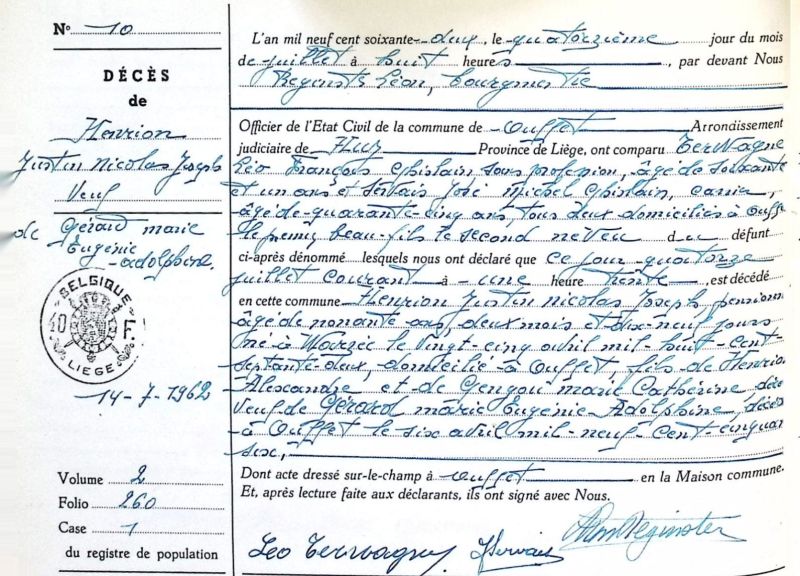 N° 10
DÉCÈS
de
Henrion
Justin Nicolas Joseph
Veuf
de Gérard Marie
Eugénie
Adolphine
BELGIQUE
40 F.
LIEGE
14-7-1962
Volume 2
Folio 260
Case 1
du registre de population
L'an mil neuf cent soixante-deux, le quatorzième jour du mois
de juillet à huit heures, par devant Nous
Reginster Léon, bourgmestre
Officier de l'Etat Civil de la commune de Ouffet Arrondissement
judiciaire de Huy Province de Liège, ont comparu Terwagne
Léo François Ghislain sans profession, âgé de soixante
et un ans et Servais José Michel Ghislain,
âgé de quarante-cinq ans, tous deux domiciliés à Ouff
le premier beau-fils le second neveu du défunt
ci-après dénommé lesquels nous ont déclaré que ce jour quatorze
juillet courant à une heure trente, est décédé
en cette commune Henrion Justin Nicolas Joseph pensionn
âgé de nonante ans, deux mois et dix-neuf jours
né à Warzée le vingt-cinq avril mil-huit-cent-
septante-deux, domicilié à Ouffet, fils de Henrion
Alexandre et de Gengou Marie Catherine, déc
veuf de Gérard Marie Eugénie Adolphine, décéd
à Ouffet le six avril mil-neuf-cent-cinquan
six,
Dont acte dressé sur-le-champ à Ouffet en la Maison commune.
Et, après lecture faite aux déclarants, ils ont signé avec Nous.
Leo Terwagne JServais Reginster